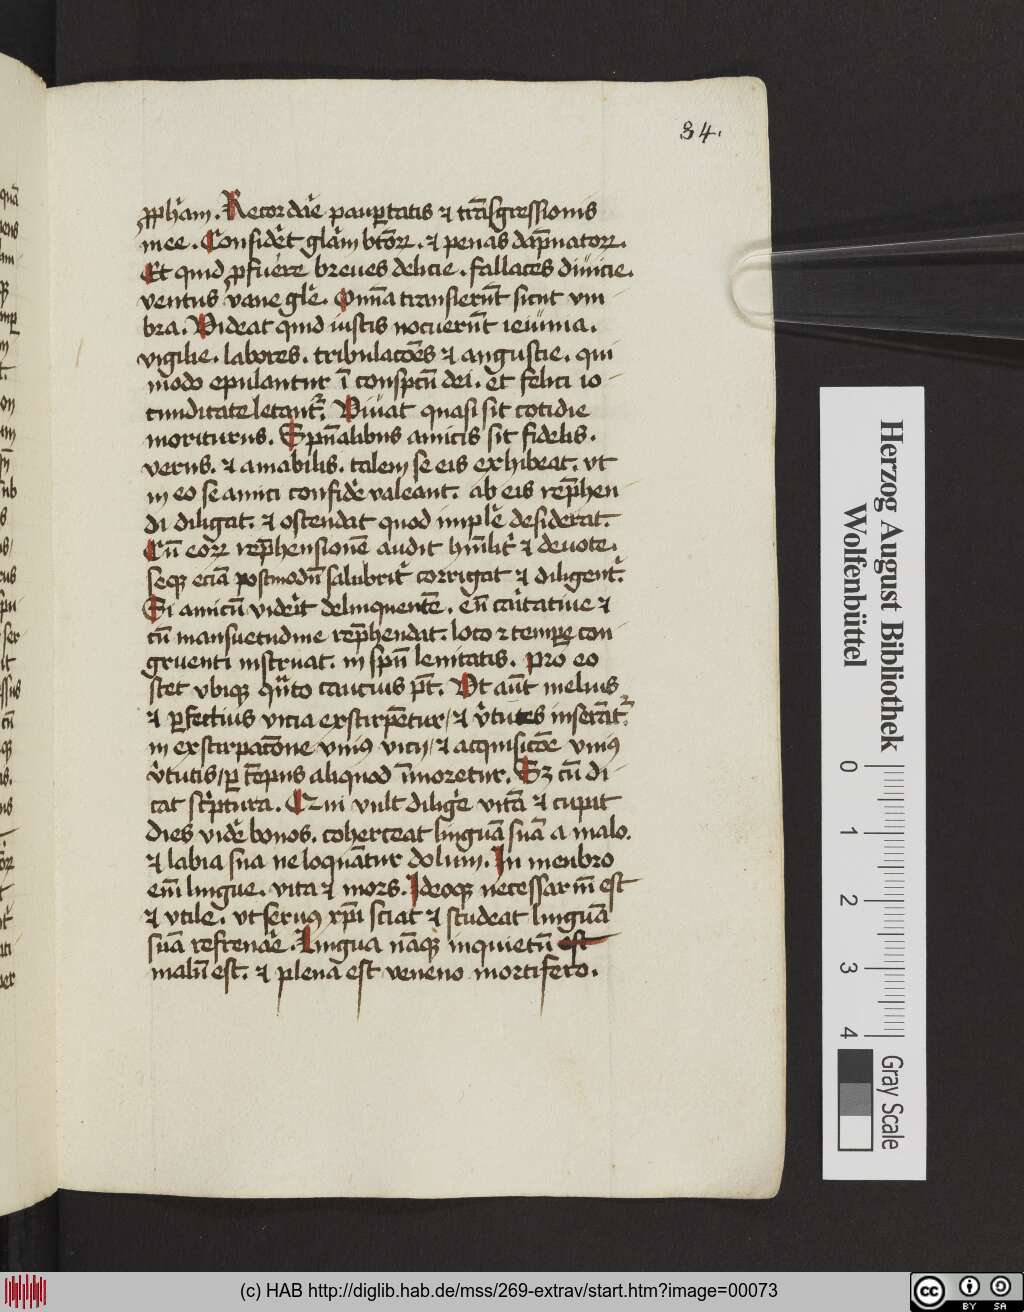 34.
ꝓph̄am. Recordar̄e paup̱tatis ⁊ trāsgressionis
mee. Consider̄et glām btōꝝ. ⁊ penas dāpnatoꝝ.
Et quid ꝓfuere breues delicie. fallaces diuicie.
ventus vane glē. Om̄ia transierūt sicut vm
bra. Videat quid iustis nocuerūt ieiunia.
vigilie. labores. tribulacōēs ⁊ angustie. qui
modo epulantur ī conspctū dei. et felici io
cunditate letant᷑. Viuat quasi sit cotidie
moriturus. Spūalibus amicis sit fidelis.
verus. ⁊ amabilis. talem se eis exhibeat. vt
in eo se amici confider̄e valeant. ab eis rep̄hen
di diligat. ⁊ ostendat quod implē desiderat.
Cū eoꝝ rep̄hensionē audit hūilit᷑ ⁊ deuote.
seqꝫ eciā postmodū salubrit᷑ corrigat ⁊ diligent᷑.
Si amicū viderit delinquentē. eū caritatiue ⁊
cū mansuetudine rep̄hendat. loco ⁊ tempe̱ con
gruenti instruat. in spū lenitatis. pro eo
stet vbiqꝫ quāto caucius pt̄. Vt aūt melius
⁊ ꝑfectius vicia exstirpētur / ⁊ v̄tutes inserāt᷑.
in exstirpacōne vniꝰ vicij / ⁊ acquisicōe vniꝰ
v̄tutis / ꝑ tēpus aliquod īmoretur. Sꝫ cū di
cat sc̄ptura. Qui vult diliger̄e vitā ⁊ cupit
dies vider̄e bonos. coherceat linguā suā a malo.
⁊ labia sua ne loquātur dolum. In menbro
eīm lingue. vita ⁊ mors. Ideoqꝫ necessariū est
⁊ vtile. vt seruꝰ xp̄i sciat ⁊ studeat linguā
suā refrenar̄e. Lingua nāqꝫ inquietū est
malū est. ⁊ plena est veneno mortifero.
Herzog August Bibliothek
Wolfenbüttel
0 1 2 3 4
Gray Scale
(c) HAB http://diglib.hab.de/mss/269-extrav/start.htm?image=00073
cc BY SA